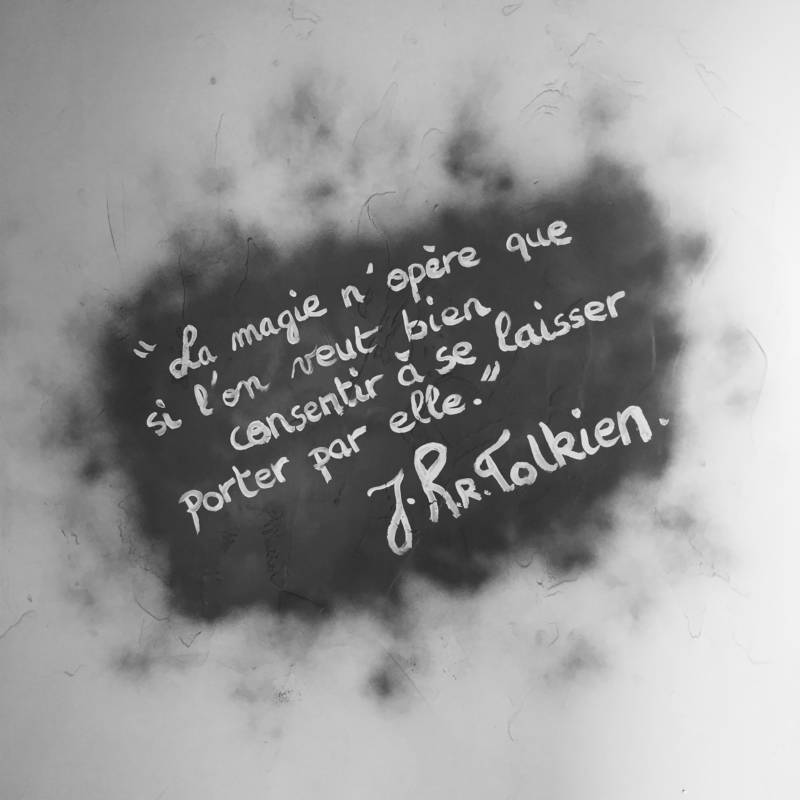 “ La magie n'opère que
si l'on veut bien
consentir à se laisser
porter par elle.”
J.R.R.Tolkien.